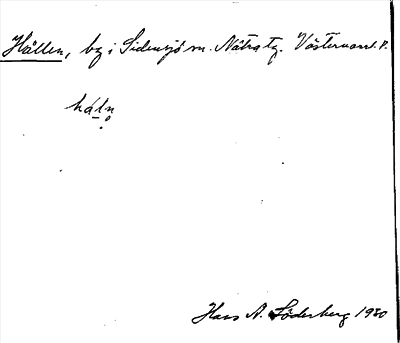 Hällen, by i Sidensjö sn. Nätra tg. Västernorrl.
håln
Hans A. Söderberg 1980